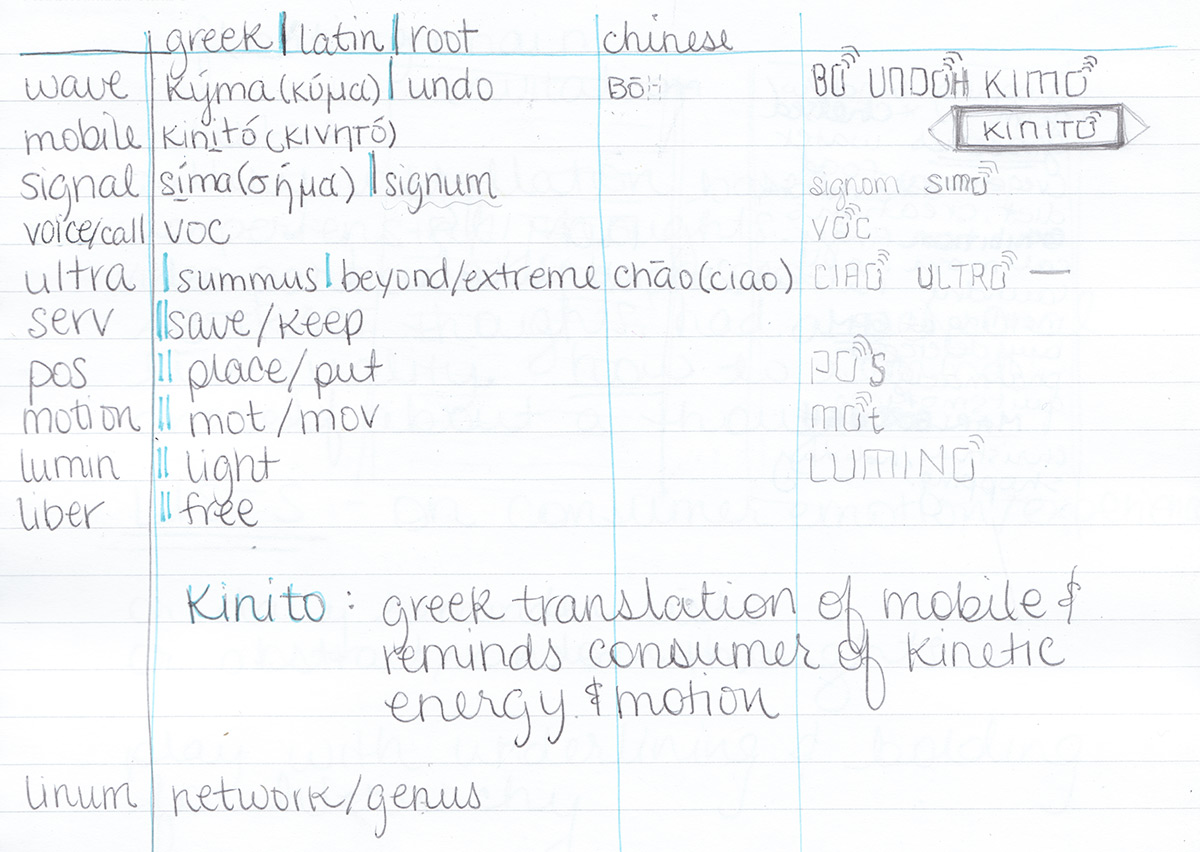 greek | latin | root chinese
wave kýma (κύμα) | undo BŌH BO UNDOH KIMO
mobile kinitó (κινητό) KINITO
signal síma (σήμα) | signum signom SIMO
voice/call voc VOC
ultra | summus | beyond/extreme chāo (ciao) CIAO ULTRO —
serv || save/keep
pos || place/put POS
motion || mot/mov MOt
lumin || light LUMINO
liber || free
Kinito : greek translation of mobile &
reminds consumer of kinetic
energy & motion
linum network/genus